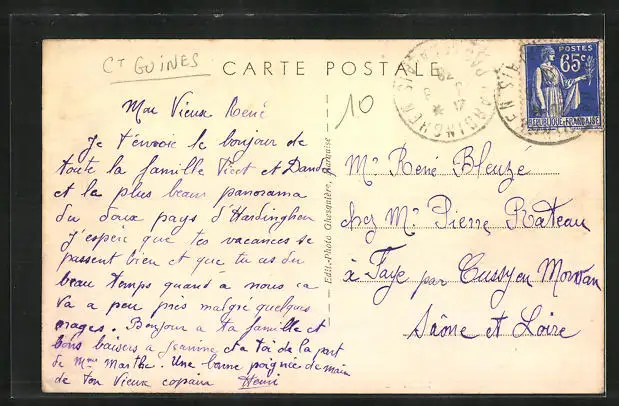 CT GUINES
CARTE POSTALE
Mon Vieux René
Je t'envoie le bonjour de
toute la famille et
et la plus beau panorama
du doux pays d'Hardinghen
J'espère que tes vacances se
passent bien et que tu as du
beau temps quand à nous ca
va a peu près malgré quelques
orages. Bonjour a ta famille et
bons baisers a Jeanine et a toi de la part
de Mme Marthe. Une bonne poignée de main
de ton Vieux copain Henri
Edit.-Photo Ghesquière,
10
HARDINGHEN
POSTES
65c
REPUBLIQUE FRANCAISE
Mr René Bleuzé
chez Mr Pierre Rateau
à Faye par Cussy en Morvan
Saône et Loire